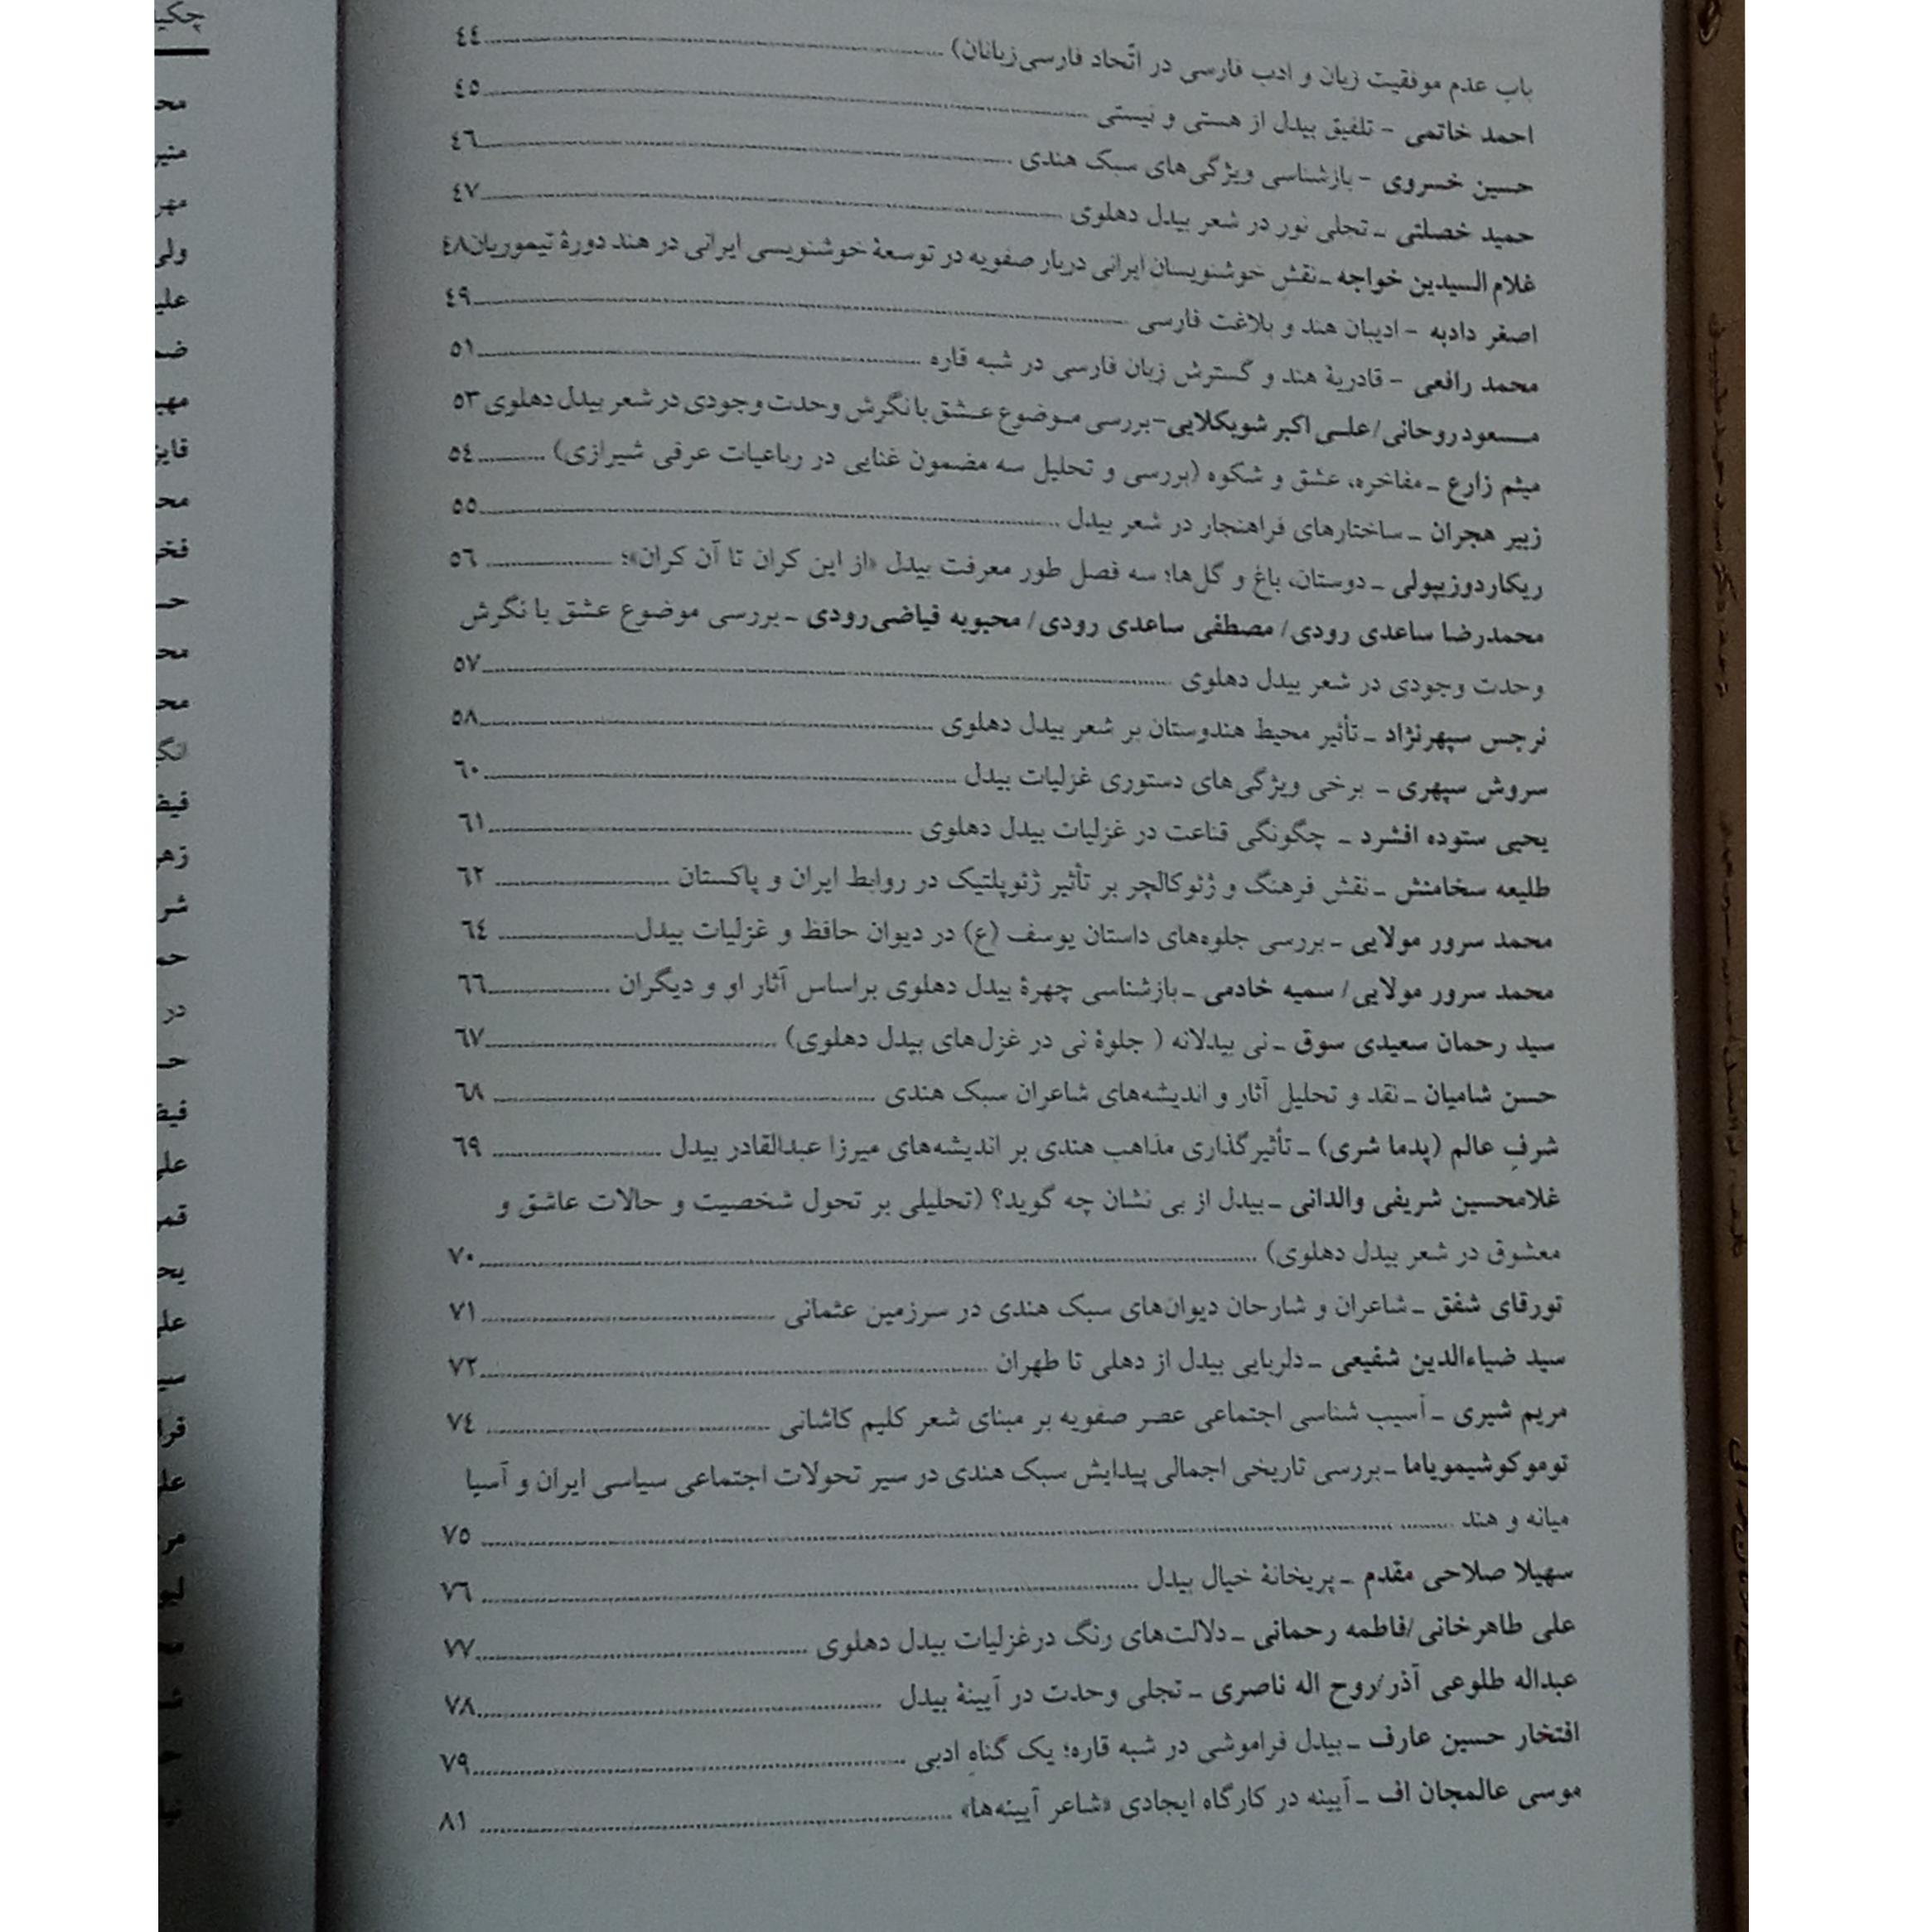 باب عدم موفقیت زبان و ادب فارسی در اتّحاد فارسی‌زبانان) ........ ٤٤
احمد خاتمی - تلفیق بیدل از هستی و نیستی ........ ٤٥
حسین خسروی - بازشناسی ویژگی‌های سبک هندی ........ ٤٦
حمید خصلتی ـ تجلی نور در شعر بیدل دهلوی ........ ٤٧
غلام السیدین خواجه ـ نقش خوشنویسان ایرانی دربار صفویه در توسعۀ خوشنویسی ایرانی در هند دورۀ تیموریان ٤٨
اصغر دادبه - ادیبان هند و بلاغت فارسی ........ ٤٩
محمد رافعی - قادریۀ هند و گسترش زبان فارسی در شبه قاره ........ ٥١
مسعود روحانی/ علی اکبر شوبکلایی- بررسی موضوع عشق با نگرش وحدت وجودی در شعر بیدل دهلوی ٥٣
میثم زارع ـ مفاخره، عشق و شکوه (بررسی و تحلیل سه مضمون غنایی در رباعیات عرفی شیرازی) ........ ٥٤
زبیر هجران ـ ساختارهای فراهنجار در شعر بیدل ........ ٥٥
ریکاردوزیپولی ـ دوستان، باغ و گل‌ها؛ سه فصل طور معرفت بیدل «از این کران تا آن کران»؛ ........ ٥٦
محمدرضا ساعدی رودی/ مصطفی ساعدی رودی/ محبوبه فیاضی‌رودی ـ بررسی موضوع عشق با نگرش
وحدت وجودی در شعر بیدل دهلوی ........ ٥٧
نرجس سپهرنژاد ـ تأثیر محیط هندوستان بر شعر بیدل دهلوی ........ ٥٨
سروش سپهری ـ برخی ویژگی‌های دستوری غزلیات بیدل ........ ٦٠
یحیی ستوده افشرد ـ چگونگی قناعت در غزلیات بیدل دهلوی ........ ٦١
طلیعه سخامنش ـ نقش فرهنگ و ژئوکالچر بر تأثیر ژئوپلتیک در روابط ایران و پاکستان ........ ٦٢
محمد سرور مولایی ـ بررسی جلوه‌های داستان یوسف (ع) در دیوان حافظ و غزلیات بیدل ........ ٦٤
محمد سرور مولایی/ سمیه خادمی ـ بازشناسی چهرۀ بیدل دهلوی براساس آثار او و دیگران ........ ٦٦
سید رحمان سعیدی سوق ـ نی بیدلانه ( جلوۀ نی در غزل‌های بیدل دهلوی) ........ ٦٧
حسن شامیان ـ نقد و تحلیل آثار و اندیشه‌های شاعران سبک هندی ........ ٦٨
شرفِ عالم (پدما شری) ـ تأثیرگذاری مذاهب هندی بر اندیشه‌های میرزا عبدالقادر بیدل ........ ٦٩
غلامحسین شریفی والدانی ـ بیدل از بی نشان چه گوید؟ (تحلیلی بر تحول شخصیت و حالات عاشق و
معشوق در شعر بیدل دهلوی) ........ ٧٠
تورقای شفق ـ شاعران و شارحان دیوان‌های سبک هندی در سرزمین عثمانی ........ ٧١
سید ضیاءالدین شفیعی ـ دلربایی بیدل از دهلی تا طهران ........ ٧٢
مریم شیری ـ آسیب شناسی اجتماعی عصر صفویه بر مبنای شعر کلیم کاشانی ........ ٧٤
توموکوشیمویاما ـ بررسی تاریخی اجمالی پیدایش سبک هندی در سیر تحولات اجتماعی سیاسی ایران و آسیا
میانه و هند ........ ٧٥
سهیلا صلاحی مقدم ـ پریخانۀ خیال بیدل ........ ٧٦
علی طاهرخانی/فاطمه رحمانی ـ دلالت‌های رنگ درغزلیات بیدل دهلوی ........ ٧٧
عبداله طلوعی آذر/روح اله ناصری ـ تجلی وحدت در آیینۀ بیدل ........ ٧٨
افتخار حسین عارف ـ بیدل فراموشی در شبه قاره؛ یک گناهِ ادبی ........ ٧٩
موسی عالمجان اف ـ آیینه در کارگاه ایجادی «شاعر آیینه‌ها» ........ ٨١